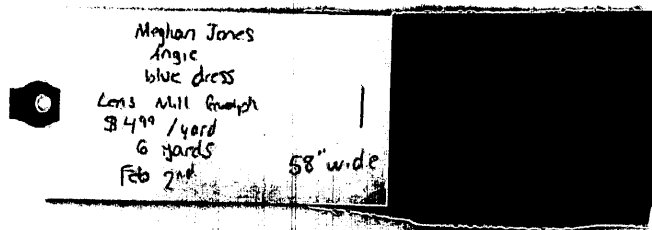 Meghan Jones
Angie
blue dress
Lens Mill Guelph
$4⁹⁹ /yard
6 yards
Feb 2ⁿᵈ
58" wide